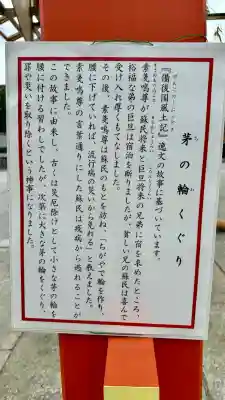 茅の輪くぐり
『備後国風土記』逸文の故事に基づいています。
素戔嗚尊が蘇民将来と巨旦将来の兄弟に宿を求めたところ、
裕福な弟の巨旦は宿泊を断りましたが、貧しい兄の蘇民は喜んで
受け入れ厚くもてなしました。
その後、素戔嗚尊は蘇民のもとを訪ね、「ちがやで輪を作り、
腰に下げていれば、流行病の災いから免れる」と教えました。
素戔嗚尊の言葉通りにした蘇民は疫病から逃れることが
できました。
この故事に由来し、古くは災厄除けとして小さな茅の輪を
腰に付ける習わしでしたが、次第に大きな茅の輪をくぐり、
罪や災いを取り除くという神事になりました。